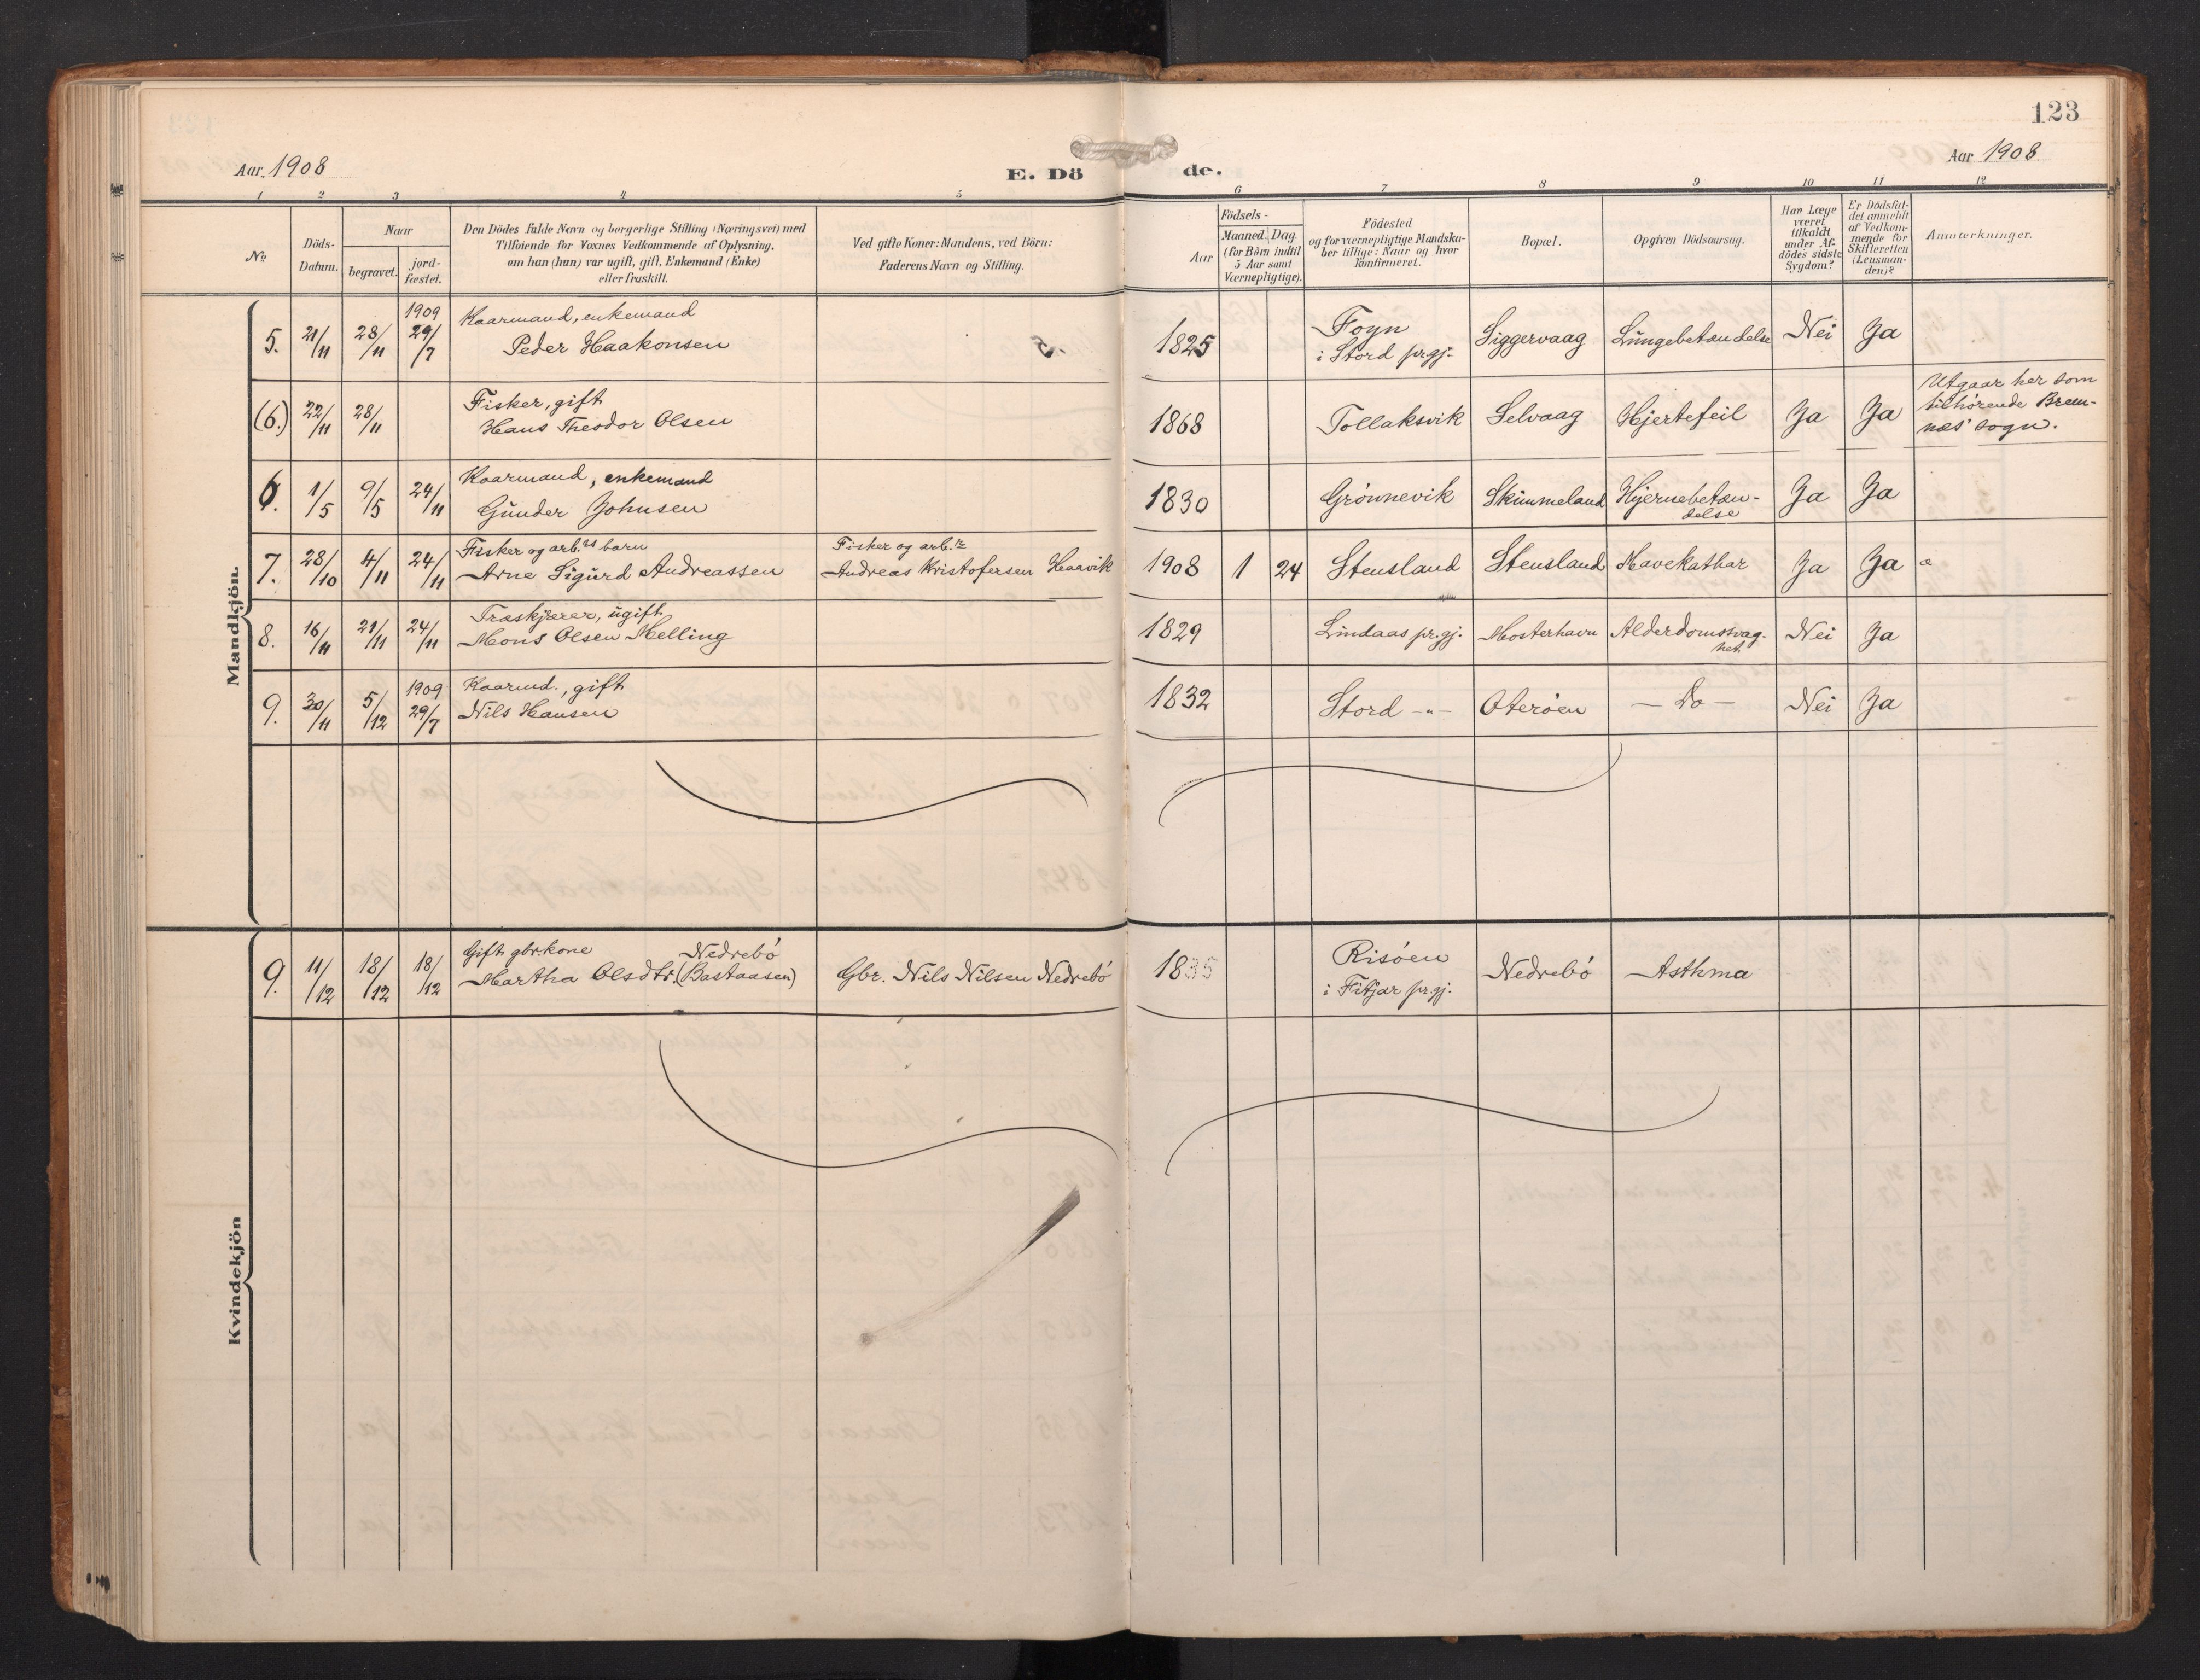 123
Aar 1908
E. Dö
de.
Aar 1908
1 2 3 4 5 6 7 8 9 10 11 12
No
Döds-
Datum.
Naar
begravet.
jord-
fæstet.
Den Dödes fulde Navn og borgerlige Stilling (Næringsvei) med
Tilföiende for Voxnes Vedkommende af Oplysning,
om han (hun) var ugift, gift, Enkemand (Enke)
eller fraskilt.
Ved gifte Koner: Mandens, ved Börn:
Faderens Navn og Stilling.
Födsels-
Aar
Maaned. Dag.
(for Börn indtil
5 Aar samt
Værnepligtige).
Födested
og for værnepligtige Mandska-
ber tillige: Naar og hvor
konfirmeret.
Bopæl.
Opgiven Dödsaarsag.
Har Læge
været
tilkaldt
under Af-
dödes sidste
Sygdom?
Er Dödsfal-
det anmeldt
af Vedkom-
mende for
Skifteretten
(Lensman-
den)?
Anmærkninger.
Mandkjön.
1909
Kaarmand, enkemand
5. 21/11 28/11 29/7 Peder Haakonsen 1825 Foyn
i Stord prgj. Siggervaag Lungebetændelse Nei Ja
Fisker, gift
(6.) 22/11 28/11 Hans Theodor Olsen 1868 Tollaksvik Selvaag Hjertefeil Ja Ja Utgaar her som
tilhørende Brem-
nes' sogn.
Kaarmand, enkemand
6. 1/5 9/5 24/11 Gunder Johnsen 1830 Grønnevik Skimmeland Hjernebetæn-
delse Ja Ja
Fisker og arb.rs barn Fisker og arb.r
7. 28/10 4/11 24/11 Arne Sigurd Andreassen Andreas Kristofersen Haavik 1908 1 24 Stensland Stensland Mavekathar Ja Ja
Træskjærer, ugift
8. 16/11 21/11 24/11 Mons Olsen Melling 1829 Lindaas pr.gj. Mosterhavn Alderdomssvag-
het Nei Ja
1909 Kaarmd., gift
9. 30/11 5/12 29/7 Nils Hansen 1832 Stord -"- Oterøen - Do - Nei Ja
Kvindekjön
Gift gbr.kone Nedrebö
9. 11/12 18/12 18/12 Martha Olsdtr. (Bastaasen) Gbr. Nils Nilsen Nedrebö 1835 Risöen
i Fitjar pr.gj. Nedrebö Asthma